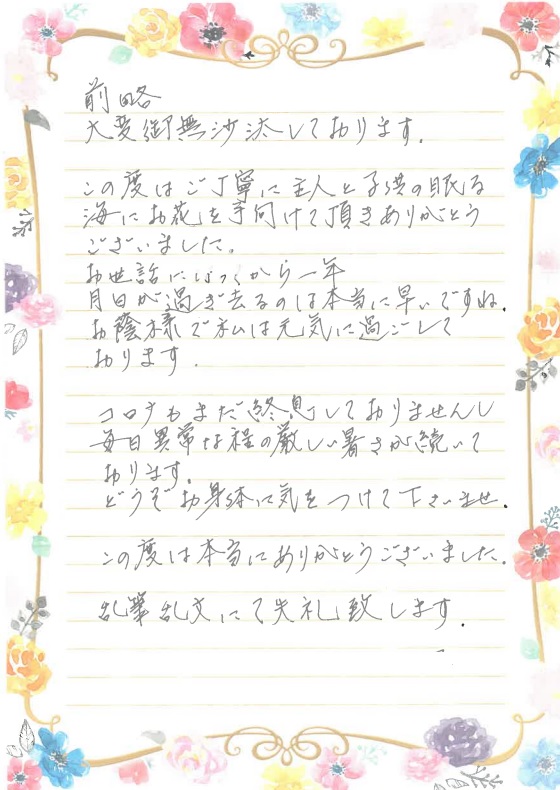 前略
大変御無沙汰しております.
この度はご丁寧に主人と子供の眠る
海にお花を手向けて頂きありがとう
ございました。
お世話になってから一年
月日が過ぎ去るのは本当に早いですね.
お蔭様で私は元気に過ごして
おります.
コロナもまだ終息しておりませんし
毎日異常な程の厳しい暑さが続いて
おります.
どうぞお身体に気をつけて下さいませ.
この度は本当にありがとうございました.
乱筆乱文にて失礼致します.